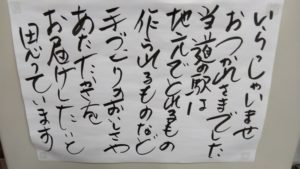 いらっしゃいませ
おつかれさまでした
当道の駅は
地元でとれるもの
作られるものなど
手づくりのおいしさや
あたたかさを
お届けしたいと
思っています